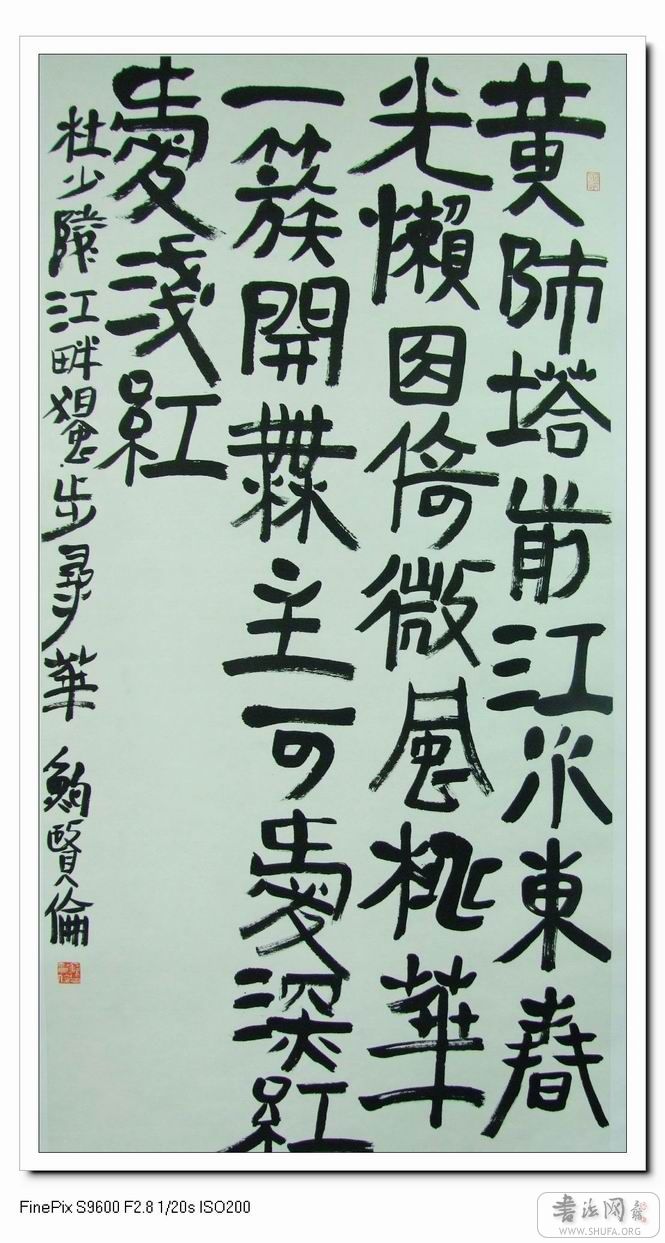 黄師塔前江水東春
光懶困倚微風桃華
一簇開無主可愛深紅
愛淺紅
杜少陵江畔獨步尋華 鮑賢倫
FinePix S9600 F2.8 1/20s ISO200
书法网
WWW.SHUFA.ORG